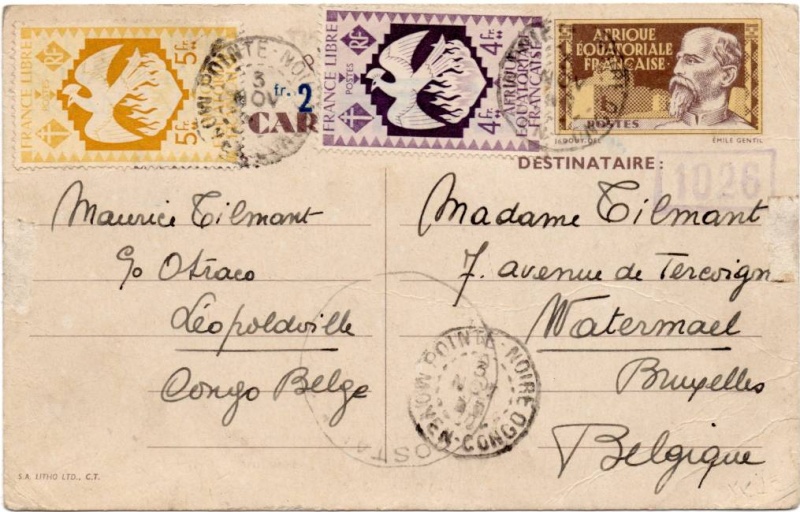 FRANCE LIBRE
POSTES RF
5 Fr.
5 Fr.
POINTE-NOIRE
3
NOV
MOYEN-CONGO
fr. 2
CAR
FRANCE LIBRE
POSTES RF
4 Fr.
4 Fr.
AFRIQUE
ÉQUATORIALE
FRANÇAISE
AFRIQUE
ÉQUATORIALE
FRANÇAISE
POSTES
ÉMILE GENTIL
DESTINATAIRE :
1026
Maurice Tilmant
c/o Otraco
Léopoldville
Congo Belge
Madame Tilmant
7. avenue de Tercoign
Watermael
Bruxelles
Belgique
POINTE-NOIRE
MOYEN-CONGO
S.A. LITHO LTD., C.T.